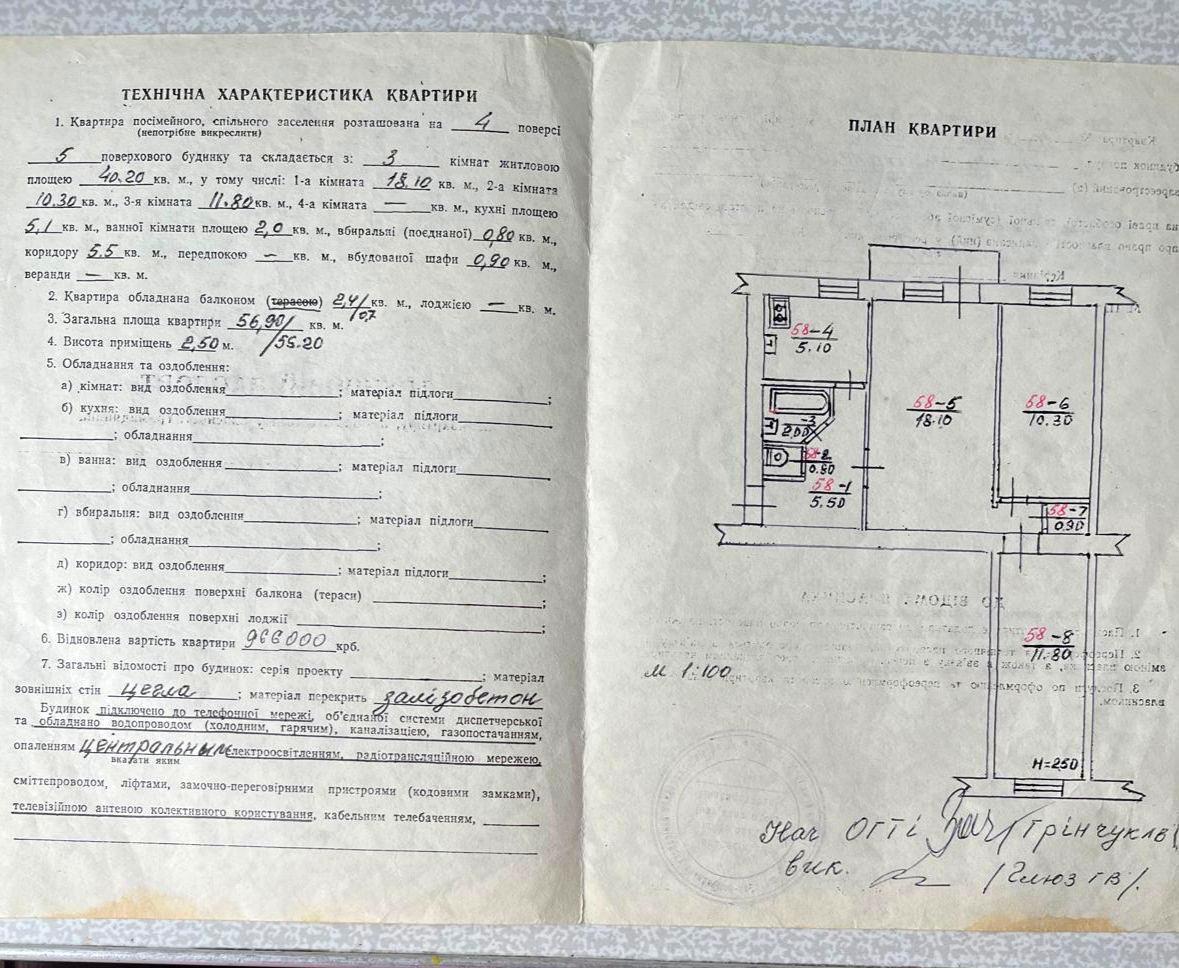 ТЕХНІЧНА ХАРАКТЕРИСТИКА КВАРТИРИ
1. Квартира посімейного, спільного заселення розташована на 4 поверсі
(непотрібне викреслити)
5 поверхового будинку та складається з: 3 кімнат житловою
площею 40.20 кв. м., у тому числі: 1-а кімната 18.10 кв. м., 2-а кімната
10.30 кв. м., 3-я кімната 11.80 кв. м., 4-а кімната — кв. м., кухні площею
5,1 кв. м., ванної кімнати площею 2,0 кв. м., вбиральні (поєднаної) 0,80 кв. м.,
коридору 5.5 кв. м., передпокою — кв. м., вбудованої шафи 0,90 кв. м.,
веранди — кв. м.
2. Квартира обладнана балконом (терасою) 2,4/0,7 кв. м., лоджією — кв. м.
3. Загальна площа квартири 56,90/ кв. м.
4. Висота приміщень 2,50 м. /55.20
5. Обладнання та оздоблення:
а) кімнат: вид оздоблення ; матеріал підлоги ;
б) кухня: вид оздоблення ; матеріал підлоги
; обладнання ;
в) ванна: вид оздоблення ; матеріал підлоги
; обладнання ;
г) вбиральня: вид оздоблення ; матеріал підлоги
; обладнання ;
д) коридор: вид оздоблення ; матеріал підлоги ;
ж) колір оздоблення поверхні балкона (тераси) ;
з) колір оздоблення поверхні лоджії ;
6. Відновлена вартість квартири 966000 крб.
7. Загальні відомості про будинок: серія проекту ; матеріал
зовнішніх стін цегла ; матеріал перекрить залізобетон
Будинок підключено до телефонної мережі, об'єднаної системи диспетчерської
та обладнано водопроводом (холодним, гарячим), каналізацією, газопостачанням,
опаленням центральным електроосвітленням, радіотрансляційною мережею,
вказати яким
сміттєпроводом, ліфтами, замочно-переговірними пристроями (кодовими замками),
телевізійною антеною колективного користування, кабельним телебаченням,
ПЛАН КВАРТИРИ
58-4
5.10
58-5
18.10
58-6
10.30
-3
2.00
58-2
0.80
58-1
5.50
58-7
0.90
58-8
11.80
М 1:100
H=250
Нач ОГТІ
вик.